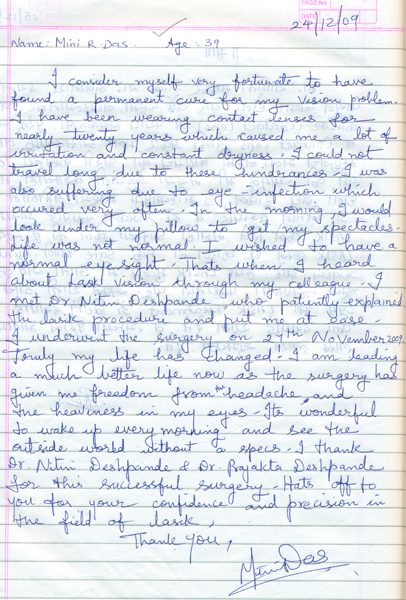 PAGE NO.
DATE 24/12/09
Name: Mini R. Das. Age: 39
I consider myself very fortunate to have
found a permanent cure for my vision problem.
I have been wearing contact lenses for
nearly twenty years which caused me a lot of
irritation and constant dryness. I could not
travel long due to these hindrances. I was
also suffering due to eye-infection which
occured very often. In the morning, I would
look under my pillow to get my spectacles.
Life was not normal. I wished to have a
normal eyesight. Thats when I heard
about Lasik vision through my colleague. I
met Dr. Nitin Deshpande, who patiently explained
the lasik procedure and put me at ease.
I underwent the surgery on 27th November 2009
Truly my life has changed! I am leading
a much better life now as the surgery has
given me freedom from the headache, and
the heaviness in my eyes. Its wonderful
to wake up every morning and see the
outside world without a specs. I thank
Dr. Nitin Deshpande & Dr. Prajakta Deshpande
for this successful surgery. Hats off to
you for your confidence and precision in
the field of lasik,
Thank you,
Mini Das